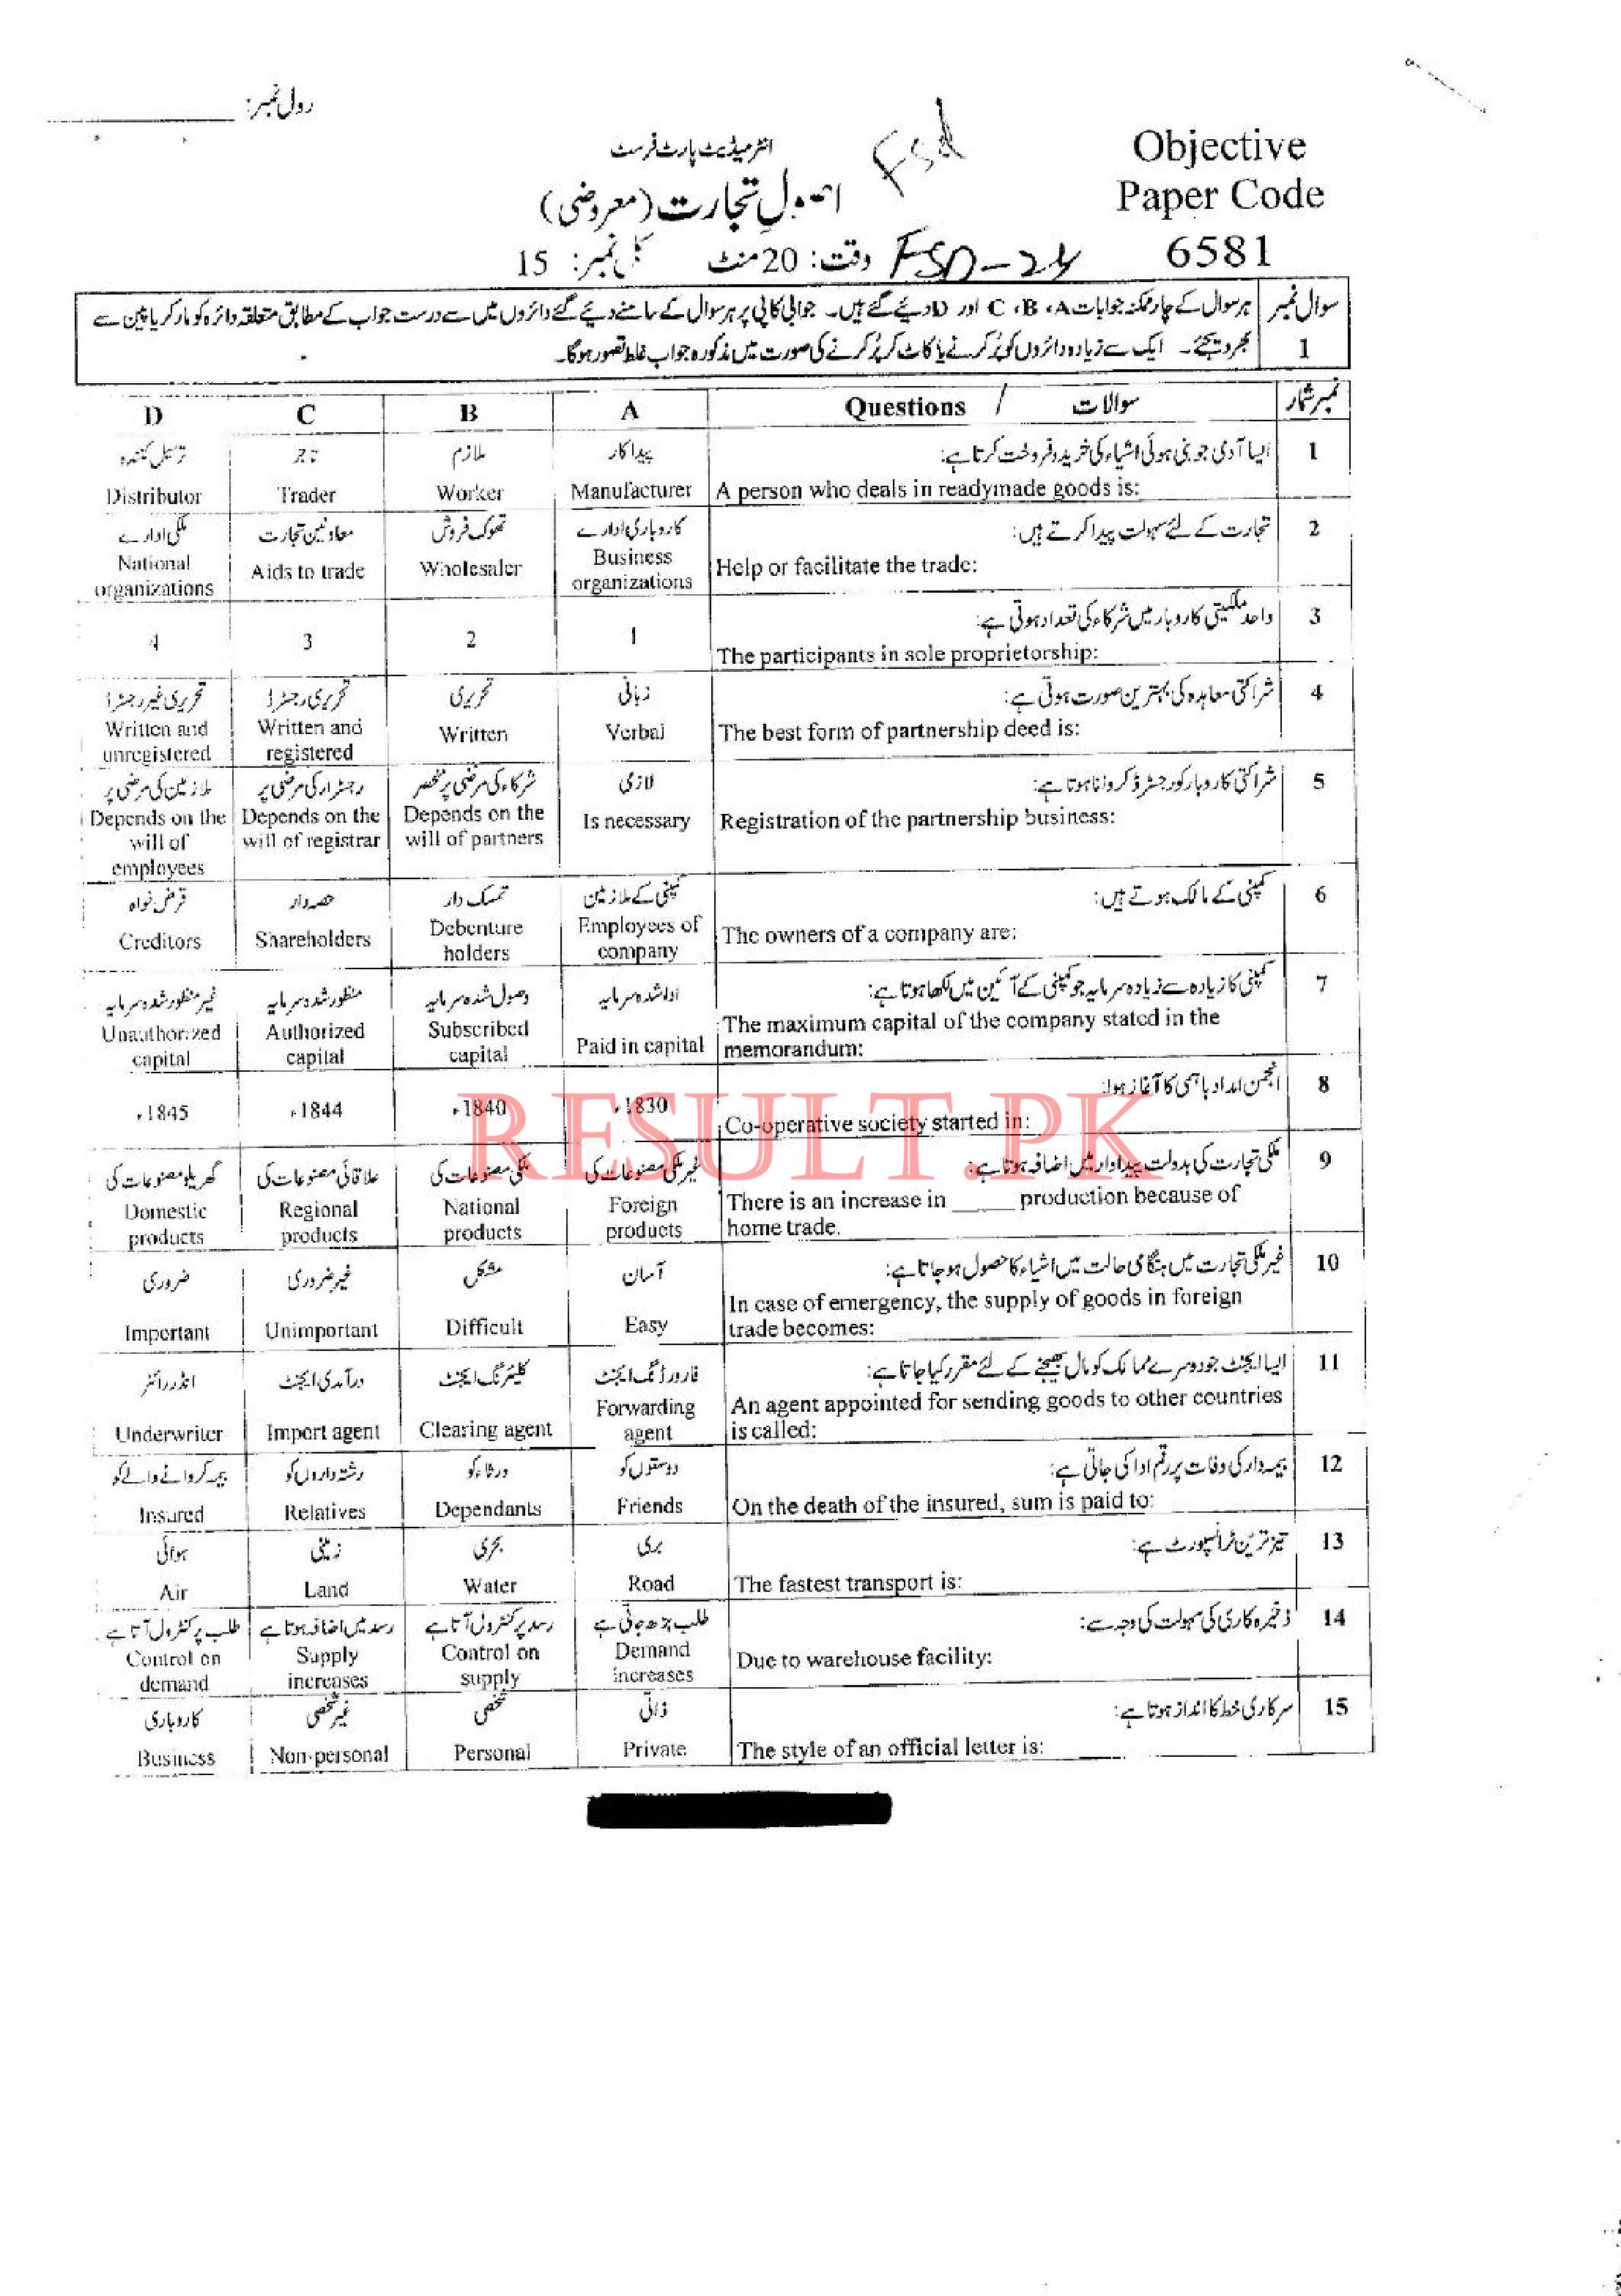 رول نمبر:
انٹرمیڈیٹ پارٹ فرسٹ
Fsd
Objective
Paper Code
اصولِ تجارت (معروضی)
6581
FSD-24
وقت: 20 منٹ
کل نمبر: 15
سوال نمبر 1
ہر سوال کے چار ممکنہ جوابات A، B، C اور D دیئے گئے ہیں۔ جوابی کاپی پر ہر سوال کے سامنے دیئے گئے دائروں میں سے درست جواب کے مطابق متعلقہ دائرہ کو مارکر یا پین سے
بھر دیجئے۔ ایک سے زیادہ دائروں کو پُر کرنے یا کاٹ کر پُر کرنے کی صورت میں مذکورہ جواب غلط تصور ہوگا۔
D C B A Questions / سوالات نمبر شمار
ترسیل کنندہ تاجر ملازم پیداکار ایسا آدمی جو بنی ہوئی اشیاء کی خرید و فروخت کرتا ہے: 1
Distributor Trader Worker Manufacturer A person who deals in readymade goods is:
ملکی ادارے معاونین تجارت تھوک فروش کاروباری ادارے تجارت کے لئے سہولت پیدا کرتے ہیں: 2
National organizations Aids to trade Wholesaler Business organizations Help or facilitate the trade:
واحد ملکیتی کاروبار میں شرکاء کی تعداد ہوتی ہے: 3
4 3 2 1 The participants in sole proprietorship:
تحریری غیر رجسٹرڈ تحریری رجسٹرڈ تحریری زبانی شراکتی معاہدہ کی بہترین صورت ہوتی ہے: 4
Written and unregistered Written and registered Written Verbal The best form of partnership deed is:
ملازمین کی مرضی پر رجسٹرار کی مرضی پر شرکاء کی مرضی پر منحصر لازمی شراکتی کاروبار کو رجسٹرڈ کروانا ہوتا ہے: 5
Depends on the will of employees Depends on the will of registrar Depends on the will of partners Is necessary Registration of the partnership business:
قرض خواہ حصہ دار تمسک دار کمپنی کے ملازمین کمپنی کے مالک ہوتے ہیں: 6
Creditors Shareholders Debenture holders Employees of company The owners of a company are:
غیر منظور شدہ سرمایہ منظور شدہ سرمایہ وصول شدہ سرمایہ ادا شدہ سرمایہ کمپنی کا زیادہ سے زیادہ سرمایہ جو کمپنی کے آئین میں لکھا ہوتا ہے: 7
Unauthorized capital Authorized capital Subscribed capital Paid in capital The maximum capital of the company stated in the memorandum:
انجمن امداد باہمی کا آغاز ہوا: 8
1845ء 1844ء 1840ء 1830ء Co-operative society started in:
گھریلو مصنوعات کی علاقائی مصنوعات کی ملکی مصنوعات کی غیر ملکی مصنوعات کی ملکی تجارت کی بدولت پیداوار میں اضافہ ہوتا ہے: 9
Domestic products Regional products National products Foreign products There is an increase in _____ production because of home trade.
ضروری غیر ضروری مشکل آسان غیر ملکی تجارت میں ہنگامی حالت میں اشیاء کا حصول ہو جاتا ہے: 10
Important Unimportant Difficult Easy In case of emergency, the supply of goods in foreign trade becomes:
انڈر رائٹر درآمدی ایجنٹ کلیئرنگ ایجنٹ فارورڈنگ ایجنٹ ایسا ایجنٹ جو دوسرے ممالک کو مال بھیجنے کے لئے مقرر کیا جاتا ہے: 11
Underwriter Import agent Clearing agent Forwarding agent An agent appointed for sending goods to other countries is called:
بیمہ کروانے والے کو رشتہ داروں کو ورثاء کو دوستوں کو بیمہ دار کی وفات پر رقم ادا کی جاتی ہے: 12
Insured Relatives Dependants Friends On the death of the insured, sum is paid to:
ہوائی زمینی بحری بری تیز ترین ٹرانسپورٹ ہے: 13
Air Land Water Road The fastest transport is:
طلب پر کنٹرول آتا ہے رسد میں اضافہ ہوتا ہے رسد پر کنٹرول آتا ہے طلب بڑھ جاتی ہے ذخیرہ کاری کی سہولت کی وجہ سے: 14
Control on demand Supply increases Control on supply Demand increases Due to warehouse facility:
کاروباری غیر شخصی شخصی ذاتی سرکاری خط کا انداز ہوتا ہے: 15
Business Non-personal Personal Private The style of an official letter is:
RESULT.PK